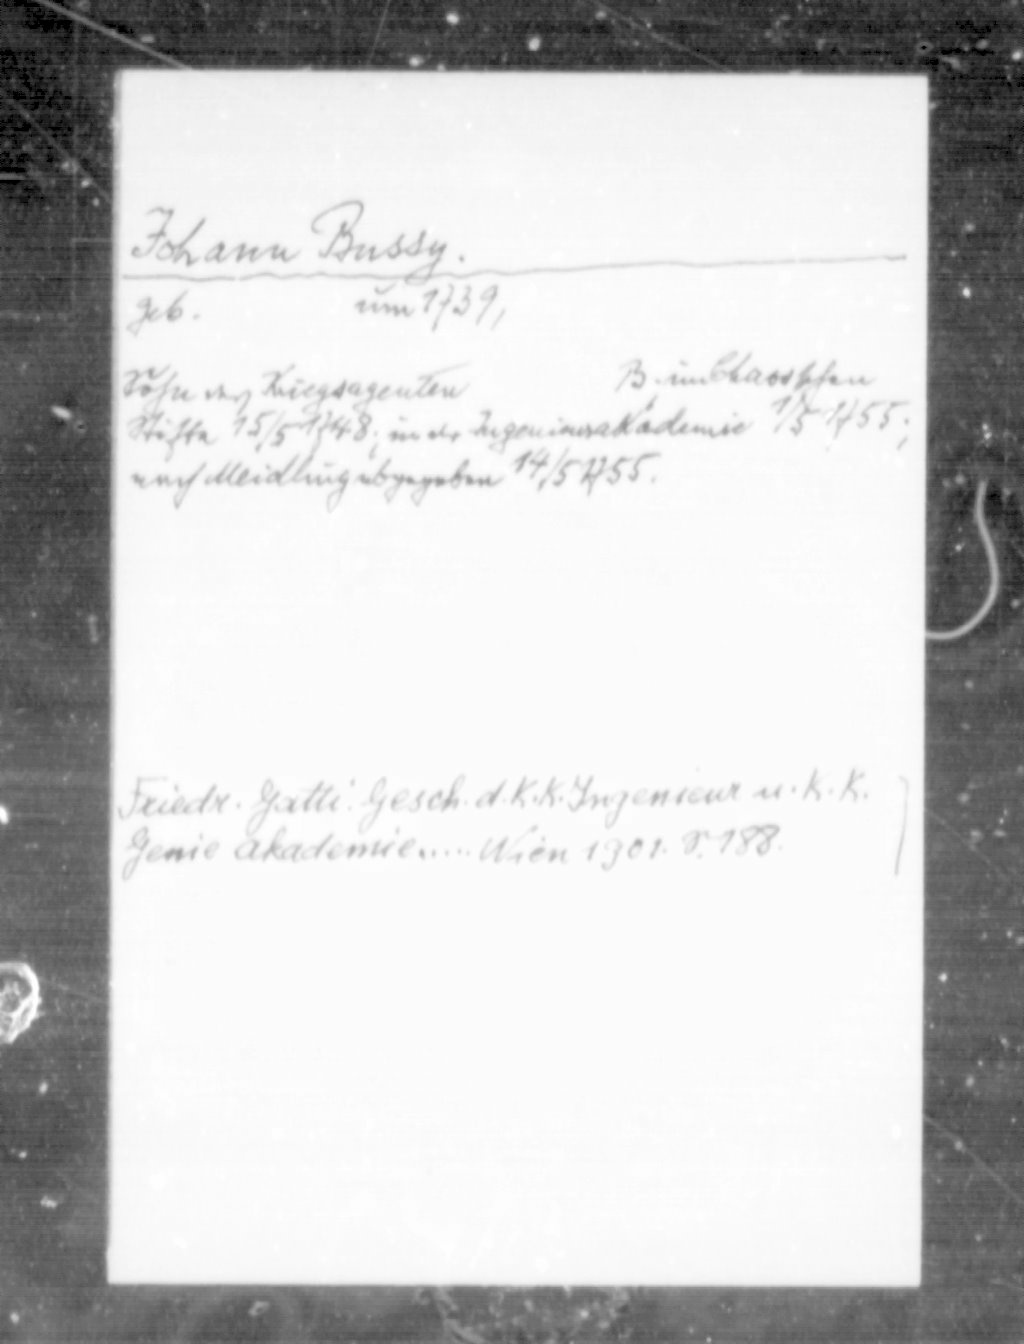 Johann Bussy.
geb. um 1739,
Sohn des Kriegsagenten B. im Chaos'schen
Stifte 15/5 1748; in der Ingenieurakademie 1/5 1755;
nach Meidling abgegeben 14/5 1755.
Friedr. Gatti: Gesch. d. K. K. Ingenieur u. K. K.
Genie Akademie..... Wien 1901. S. 188.